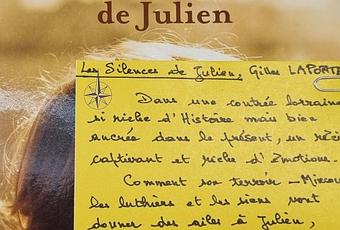 de Julien
Les Silences de Julien, Gilles LAPORTE
Dans une contrée lorraine
si riche d'Histoire mais bien
ancrée dans le présent, un réci
captivant et riche d'émotions.
Comment son terroir – Mirecou
les luthiers et les siens vont
donner des ailes à Julien,